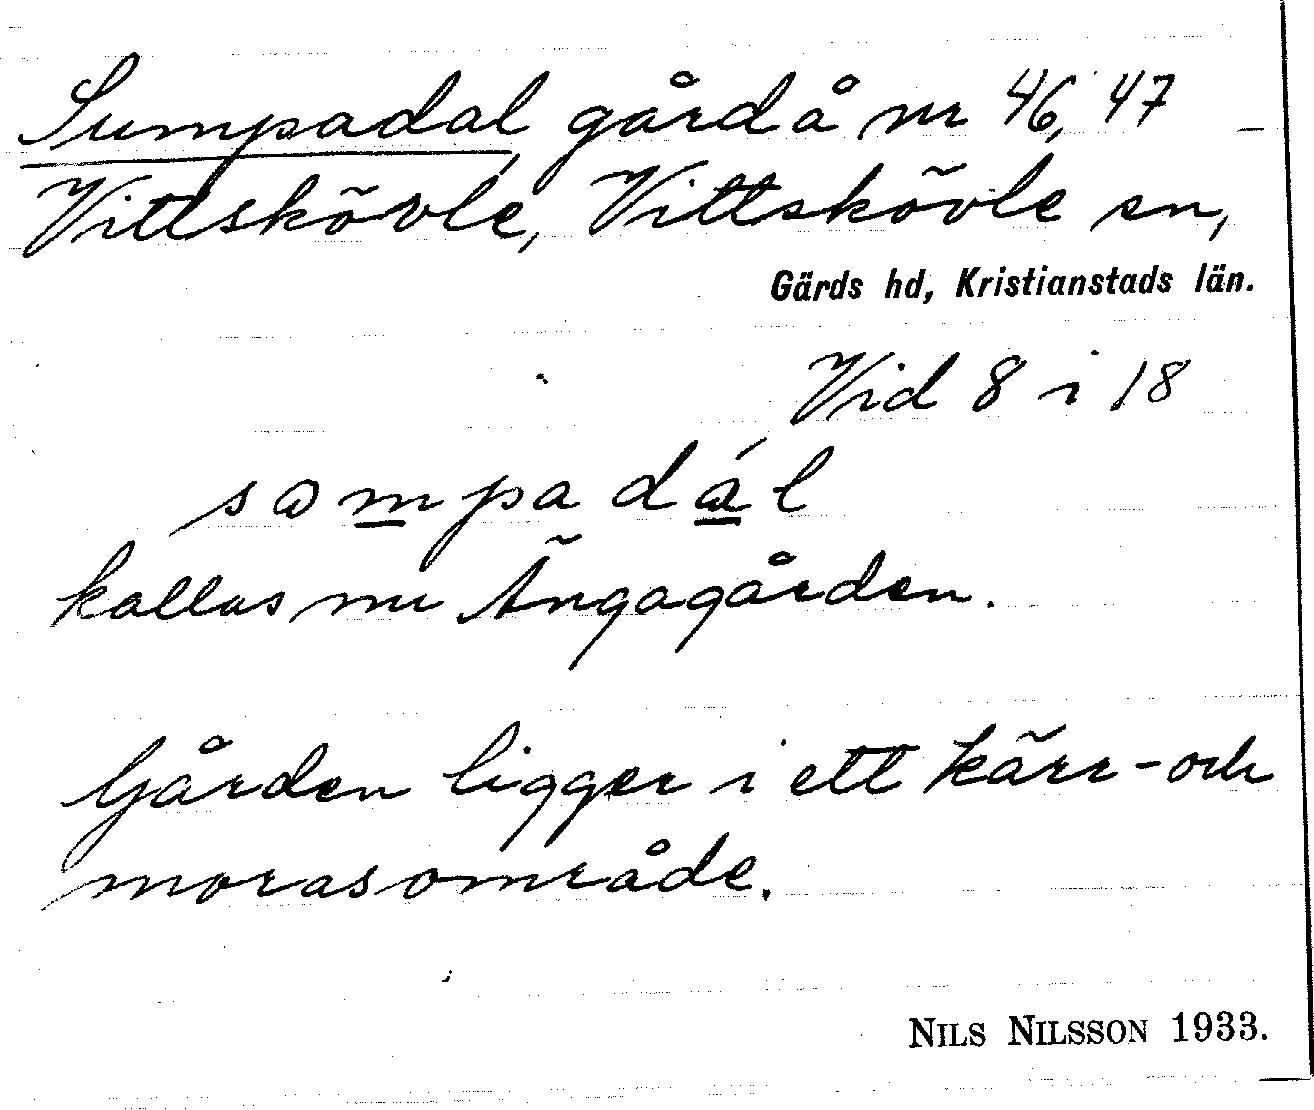 Sumpadal gård å nr 46, 47
Vittskövle, Vittskövle sn,
Gärds hd, Kristianstads län.
Vid 8 i 18
sампadál
kallas nu Ängagården.
Gården ligger i ett kärr- och
morasområde.
NILS NILSSON 1933.